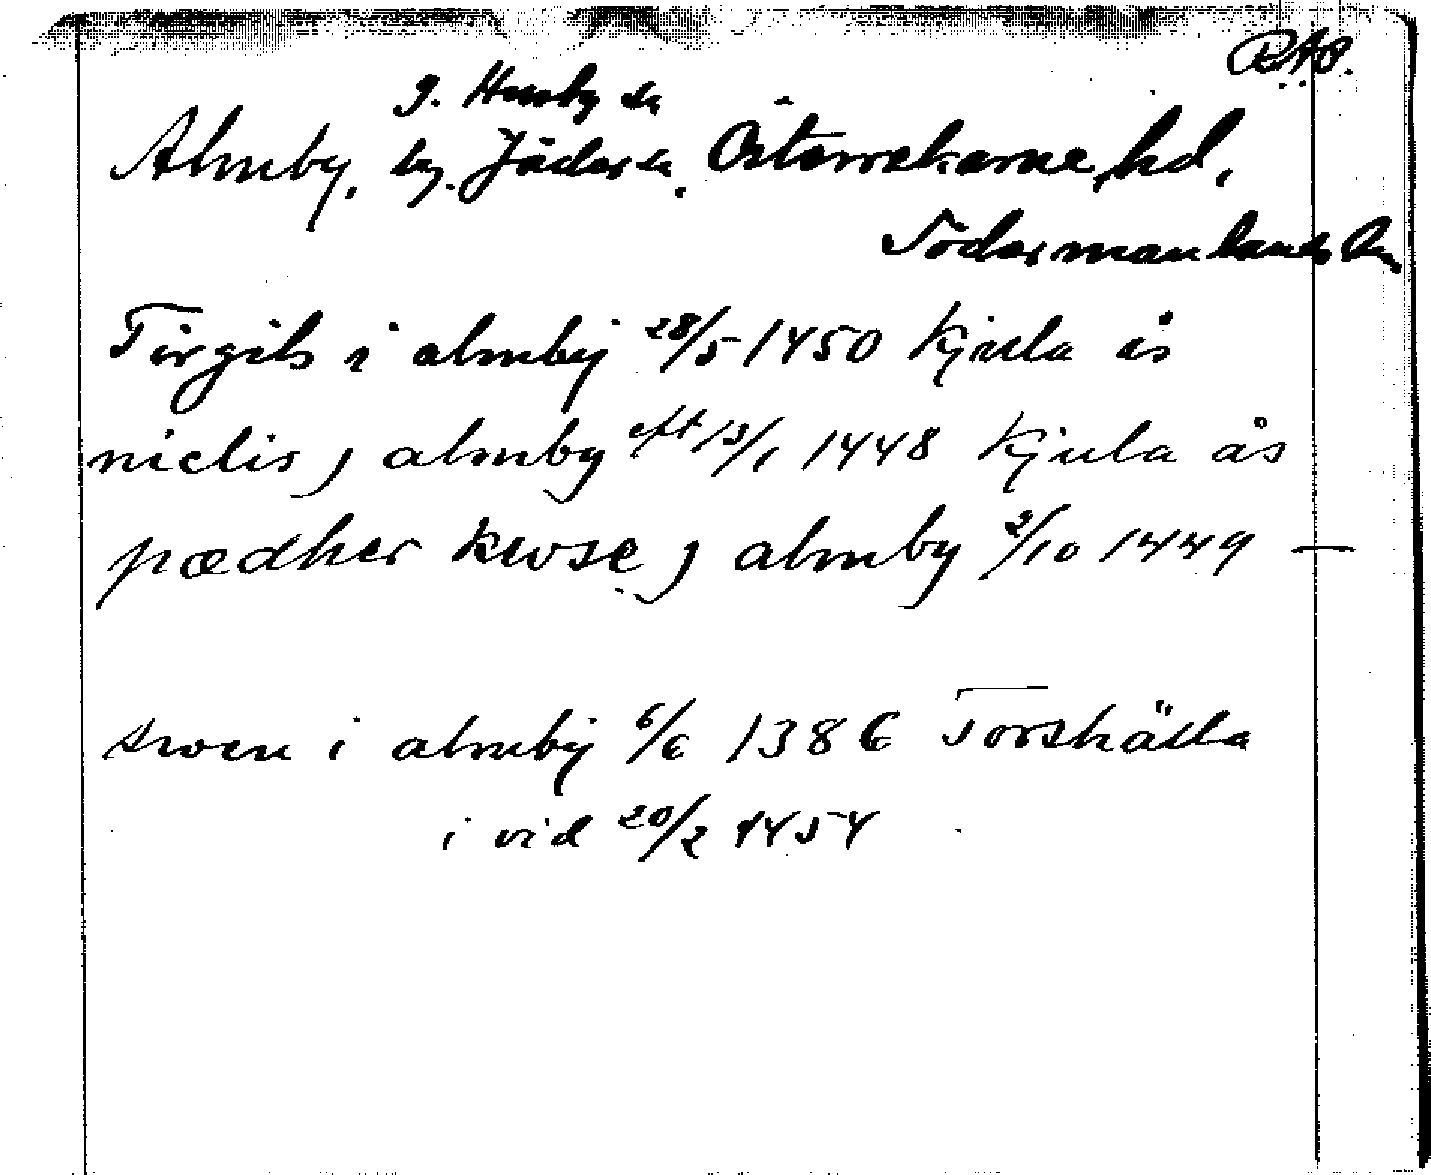 RAP.
g. Husby sn
Almby, by. Jäders sn, Österrekarne hd,
Södermanlands län
Tirgils i almby 28/5 1450 Kjula ås
niclis j almby eft 13/1 1448 Kjula ås
pædher kwse j almby 2/10 1449 —
swen i almby 6/6 1386 Torshälla
i vid 20/2 1454